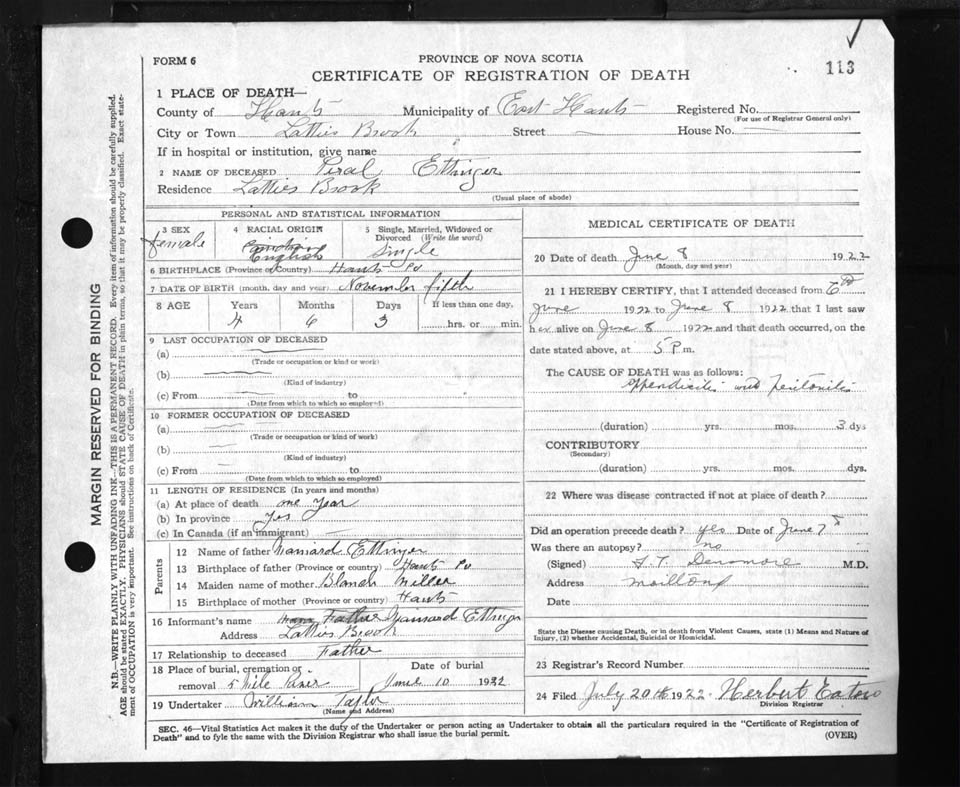 113
FORM 6
PROVINCE OF NOVA SCOTIA
CERTIFICATE OF REGISTRATION OF DEATH
1 PLACE OF DEATH—
County of Hants Municipality of East Hants Registered No.
(For use of Registrar General only)
City or Town Latties Brook Street — House No. —
If in hospital or institution, give name
2 NAME OF DECEASED Peral Ettinger
Residence Latties Brook
(Usual place of abode)
PERSONAL AND STATISTICAL INFORMATION
3 SEX 4 RACIAL ORIGIN 5 Single, Married, Widowed or
Divorced (Write the word)
female English Single
6 BIRTHPLACE (Province or Country) Hants Co
7 DATE OF BIRTH (month, day and year) November fifth
8 AGE Years Months Days If less than one day,
4 6 3 hrs. or min.
9 LAST OCCUPATION OF DECEASED
(a)
(Trade or occupation or kind or work)
(b)
(Kind of industry)
(c) From to
(Date from which to which so employed)
10 FORMER OCCUPATION OF DECEASED
(a)
(Trade or occupation or kind of work)
(b)
(Kind of industry)
(c) From to
(Date from which to which so employed)
11 LENGTH OF RESIDENCE (In years and months)
(a) At place of death one year
(b) In province yes
(c) In Canada (if an immigrant) —
Parents
12 Name of father Ettinger
13 Birthplace of father (Province or country) Hants Co
14 Maiden name of mother Blanch Miller
15 Birthplace of mother (Province or country) Hants
16 Informant's name Father Ettinger
Address Latties Brook
17 Relationship to deceased Father
18 Place of burial, cremation or Date of burial
removal 5 Mile River June 10 1922
19 Undertaker William Taylor
(Name and Address)
MEDICAL CERTIFICATE OF DEATH
20 Date of death June 8 1922
(Month, day and year)
21 I HEREBY CERTIFY, that I attended deceased from 6th
June 1922 to June 8 1922 that I last saw
her alive on June 8 1922 and that death occurred, on the
date stated above, at 5 P m.
The CAUSE OF DEATH was as follows:
Appendicitis with Peritonitis
(duration) yrs. mos. 3 dys
CONTRIBUTORY
(Secondary)
(duration) yrs. mos. dys.
22 Where was disease contracted if not at place of death?
Did an operation precede death? yes Date of June 7th
Was there an autopsy? no
(Signed) M.D.
Address Maitland
Date
State the Disease causing Death, or in death from Violent Causes, state (1) Means and Nature of
Injury, (2) whether Accidental, Suicidal or Homicidal.
23 Registrar's Record Number
24 Filed July 20th 1922 Herbert Eaton
Division Registrar
SEC. 46—Vital Statistics Act makes it the duty of the Undertaker or person acting as Undertaker to obtain all the particulars required in the "Certificate of Registration of
Death" and to fyle the same with the Division Registrar who shall issue the burial permit.
(OVER)
MARGIN RESERVED FOR BINDING
N.B.—WRITE PLAINLY WITH UNFADING INK—THIS IS A PERMANENT RECORD. Every item of information should be carefully supplied.
AGE should be stated EXACTLY. PHYSICIANS should STATE CAUSE OF DEATH in plain terms, so that it may be properly classified. Exact state-
ment of OCCUPATION is very important. See instructions on back of Certificate.